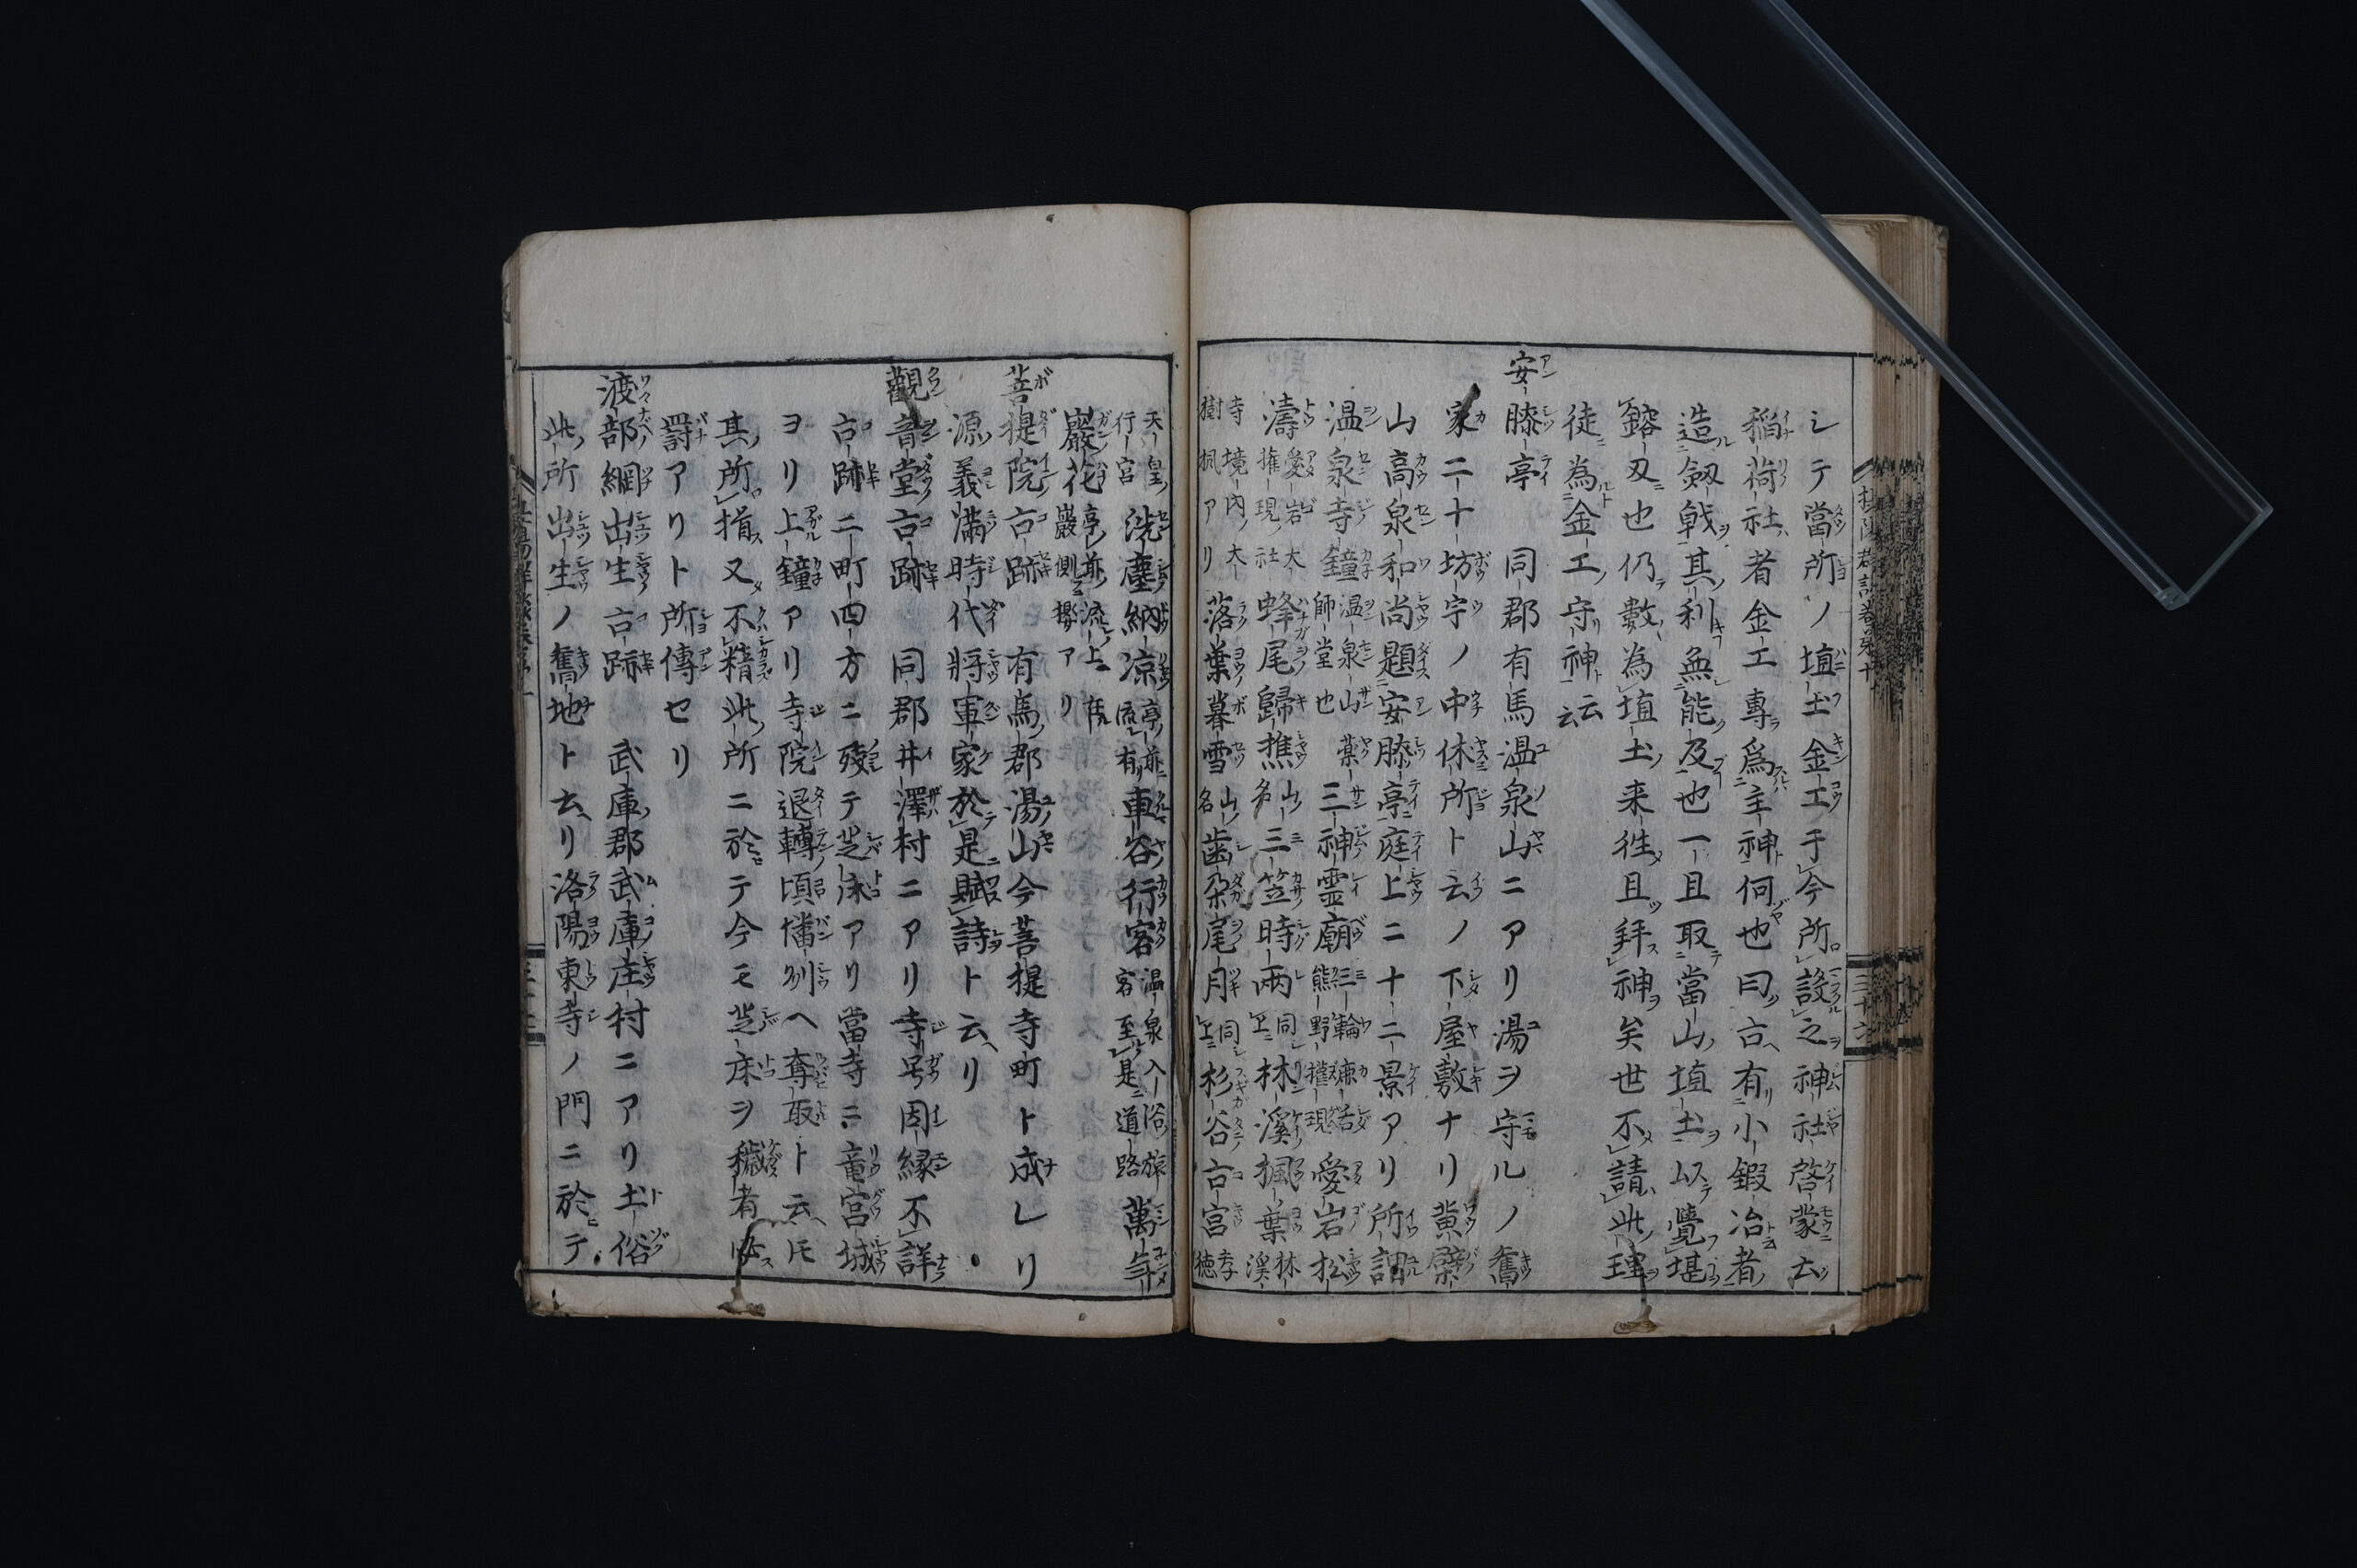 シテ當所ノ埴土金工于今所設之神社啓蒙云
稲荷社者金工專爲主神何也曰古有小鍜冶者
造剱戟其利無能及也一且取當山埴土以覺堪
鎔刄也仍數為埴土来徃且拜神矣世不請此理
徒為金工守神云云
安膝亭 同郡有馬温泉山ニアリ湯ヲ守ルノ舊
家二十坊守ノ中休所ト云ノ下屋敷ナリ黄檗
山高泉和尚題安膝亭庭上ニ十二景アリ所謂
温泉寺鐘温泉山薬師堂也三神霊廟三輪鹿舌熊野權現愛岩松
濤愛岩大權現社蜂尾歸樵山ノ名三笠時雨同上林溪楓葉林溪
寺境内大樹楓アリ落葉暮雪山名歯朶尾月同上杉谷古宮孝徳
天皇行宮洗塵納凉亭前流有車谷行客温泉入浴旅客至是道路萬年
巖花亭前流上巖側攀アリ
菩提院古跡 有馬郡湯山今菩提寺町ト成レリ
源義満時代將軍家於是賦詩ト云リ
觀音堂古跡 同郡井澤村ニアリ寺号因縁不詳
古跡二町四方ニ殘テ芝床アリ當寺ニ竜宮城
ヨリ上鐘アリ寺院退轉頃幡州ヘ奪取ト云氏
其所損又不精此所ニ於テ今モ芝床ヲ穢者ハ
罸アリト所傳セリ
渡部綱出生古跡 武庫郡武庫庄村ニアリ土俗
此所出生ノ舊地ト云リ洛陽東寺ノ門ニ於テ
攝陽群談巻第十
三十六